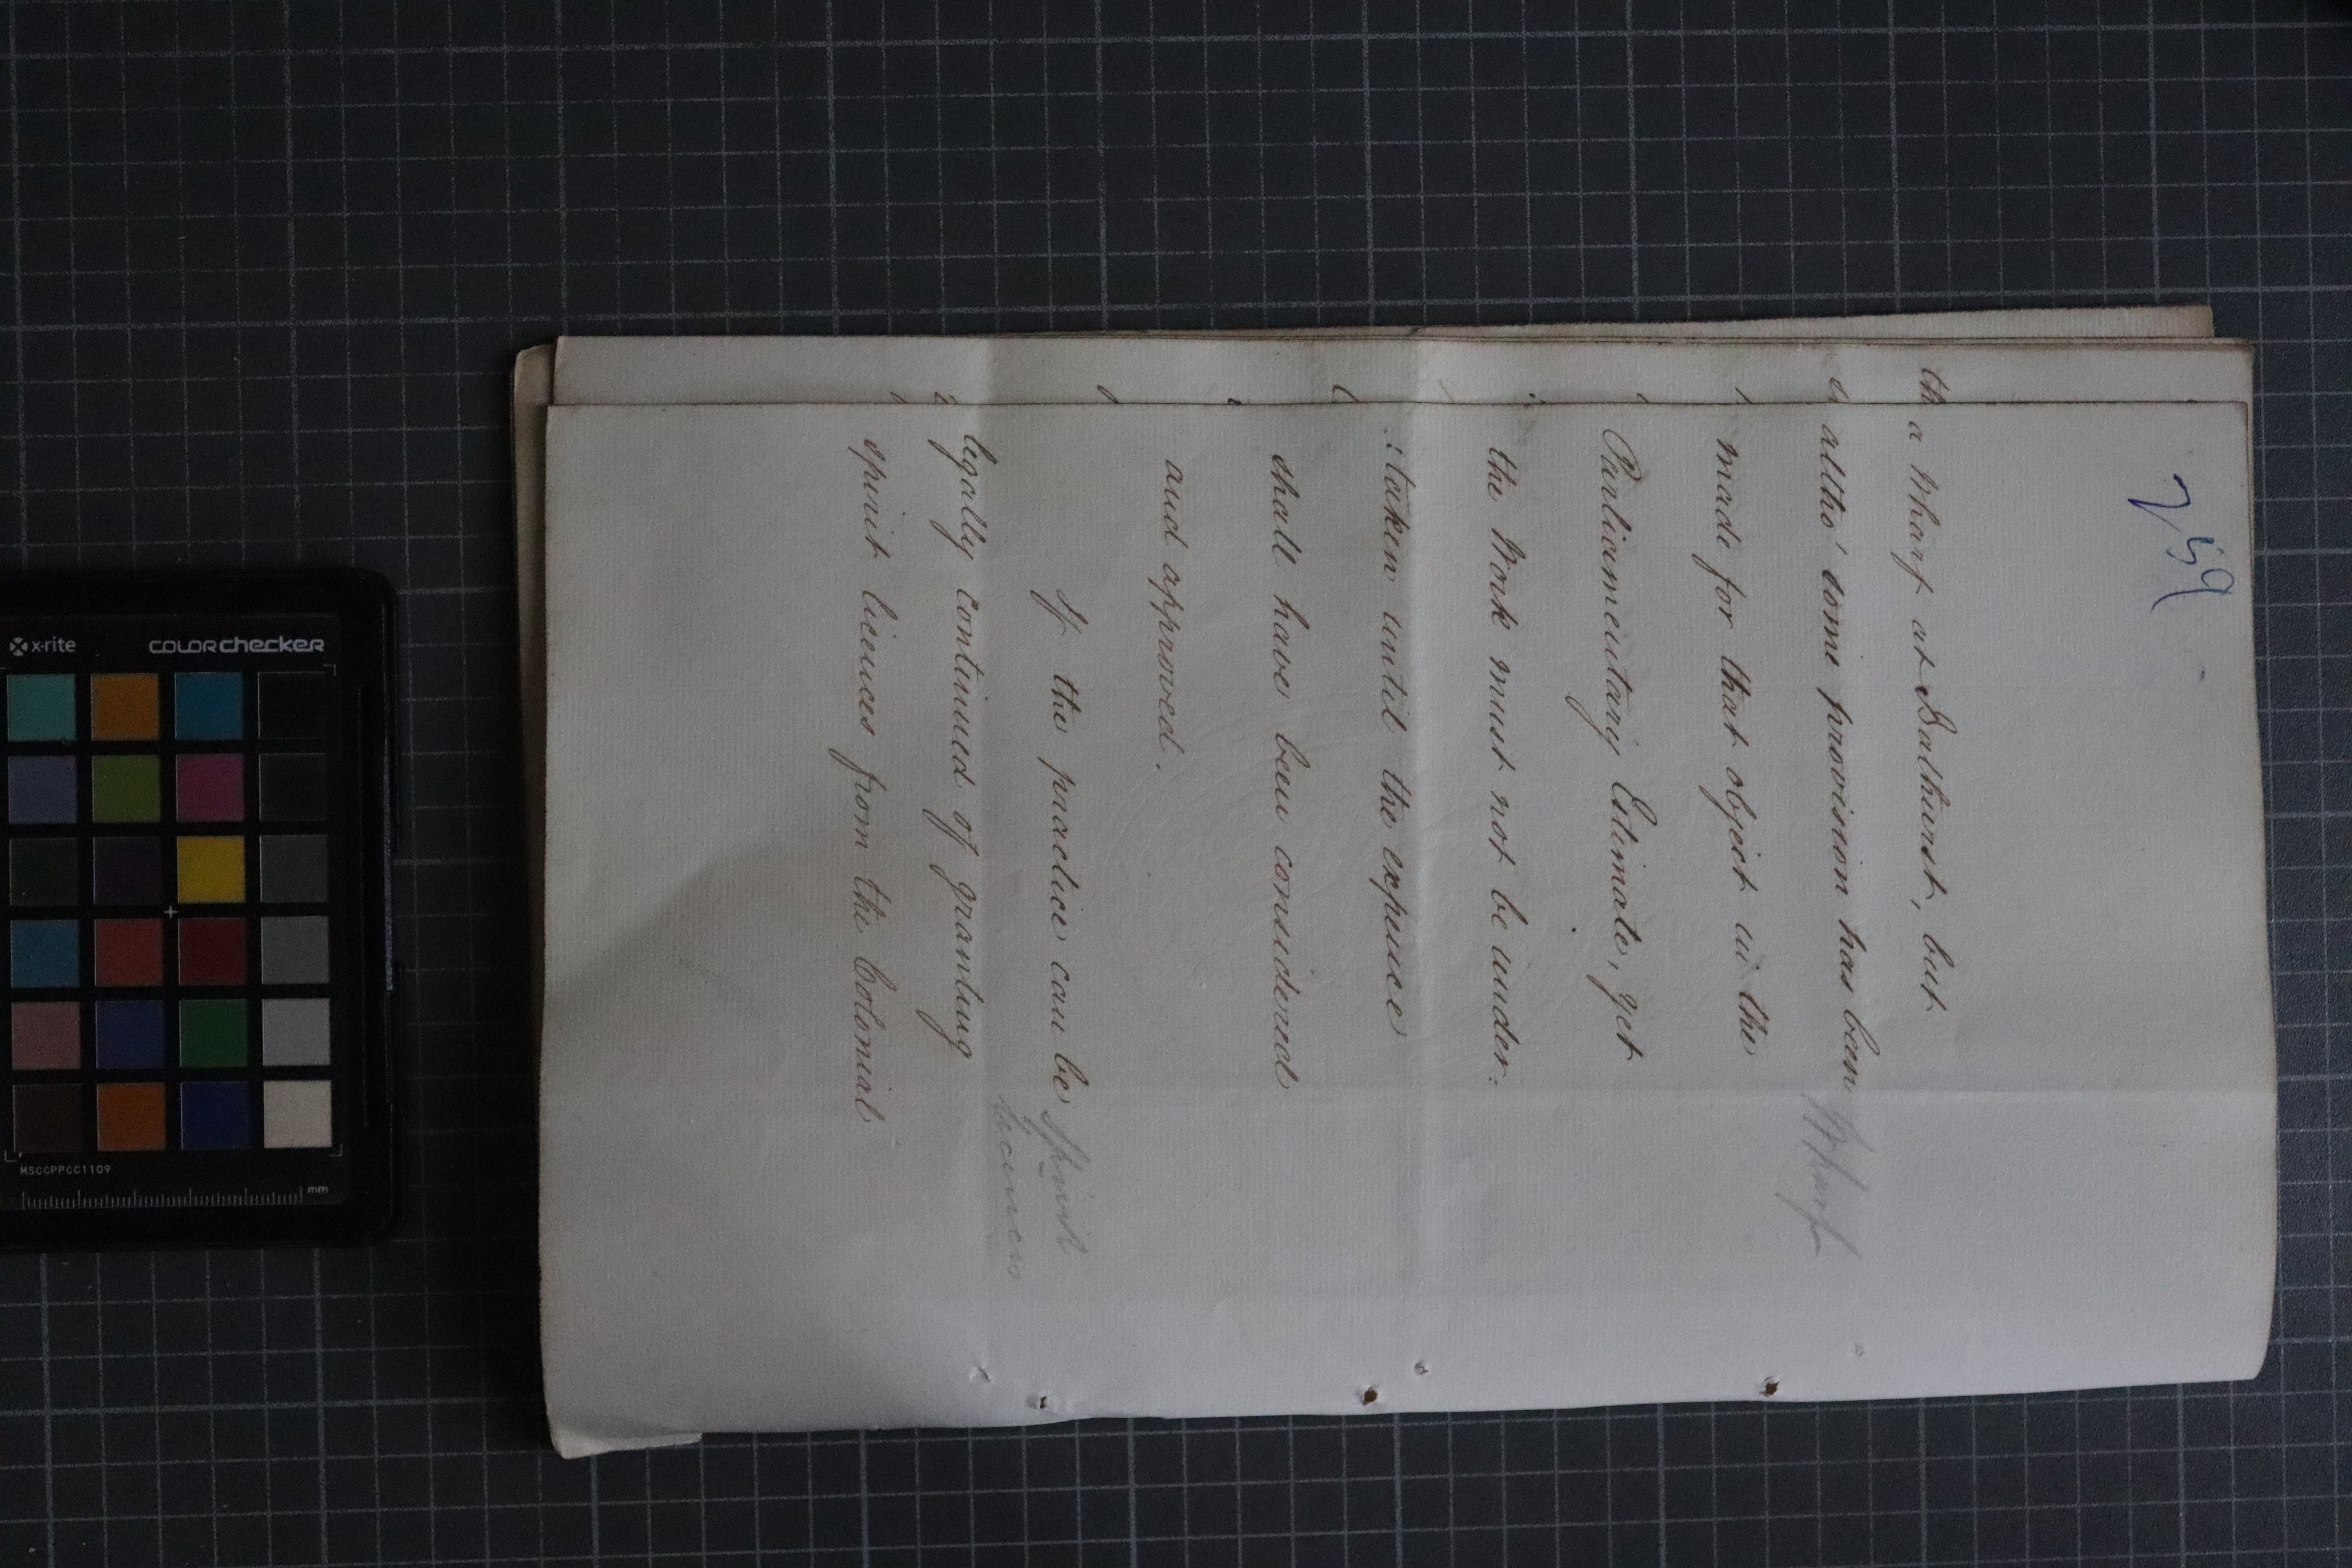 259
a Wharf at Bathurst, but
altho' some provision has been
Wharf
made for that object in the
Parliamentary Estimate, yet
the Work must not be under:
:taken until the expence
shall have been considered
and approved.
If the practice can be
Spirit
licences
legally continued of granting
spirit licences from the Colonial
x-rite
colorchecker
MSCCPPCC1109
mm